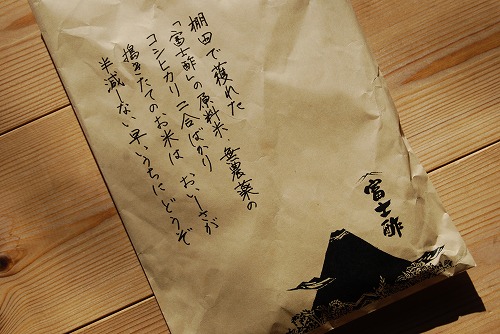 棚田で獲れた
「富士酢」の原料米・無農薬の
コシヒカリ二合ばかり
搗きたてのお米は おいしさが
半減しない早いうちにどうぞ
富士酢